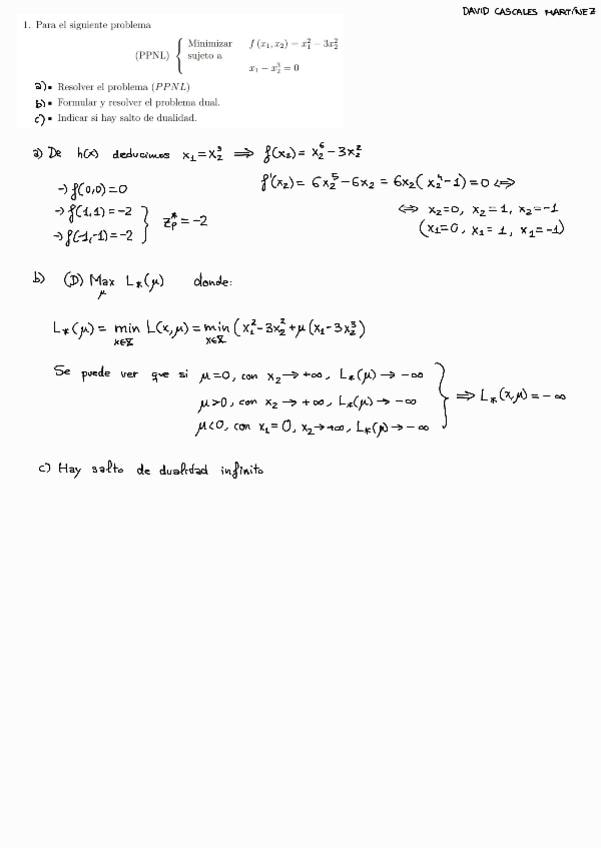 DAVID CASCALES MARTÍNEZ
1. Para el siguiente problema
(PPNL) { Minimizar f (x₁, x₂) = x₁² − 3x₂²
sujeto a
x₁ − x₂³ = 0
a) • Resolver el problema (PPNL)
b) • Formular y resolver el problema dual.
c) • Indicar si hay salto de dualidad.
a) De h(x) deducimos x₁=x₂³ ⟹ f(x₂) = x₂⁶ − 3x₂²
f'(x₂) = 6x₂⁵ − 6x₂ = 6x₂(x₂⁴ − 1) = 0 ⟺
⟺ x₂=0, x₂=1, x₂=−1
(x₁=0, x₁=1, x₁=−1)
→ f(0,0)=0
→ f(1,1)=−2
→ f(-1,-1)=−2 } z*ₚ = −2
b) (D) Max L*(μ) donde:
μ
L*(μ) = min L(x,μ) = min (x₁² − 3x₂² + μ(x₁ − 3x₂³)
x∈X x∈X
Se puede ver que si μ=0, con x₂ → +∞, L*(μ) → −∞
μ>0, con x₂ → +∞, L*(μ) → −∞ } ⟹ L*(x,μ) = −∞
μ<0, con x₁=0, x₂→+∞, L*(μ) → −∞
c) Hay salto de dualidad infinito